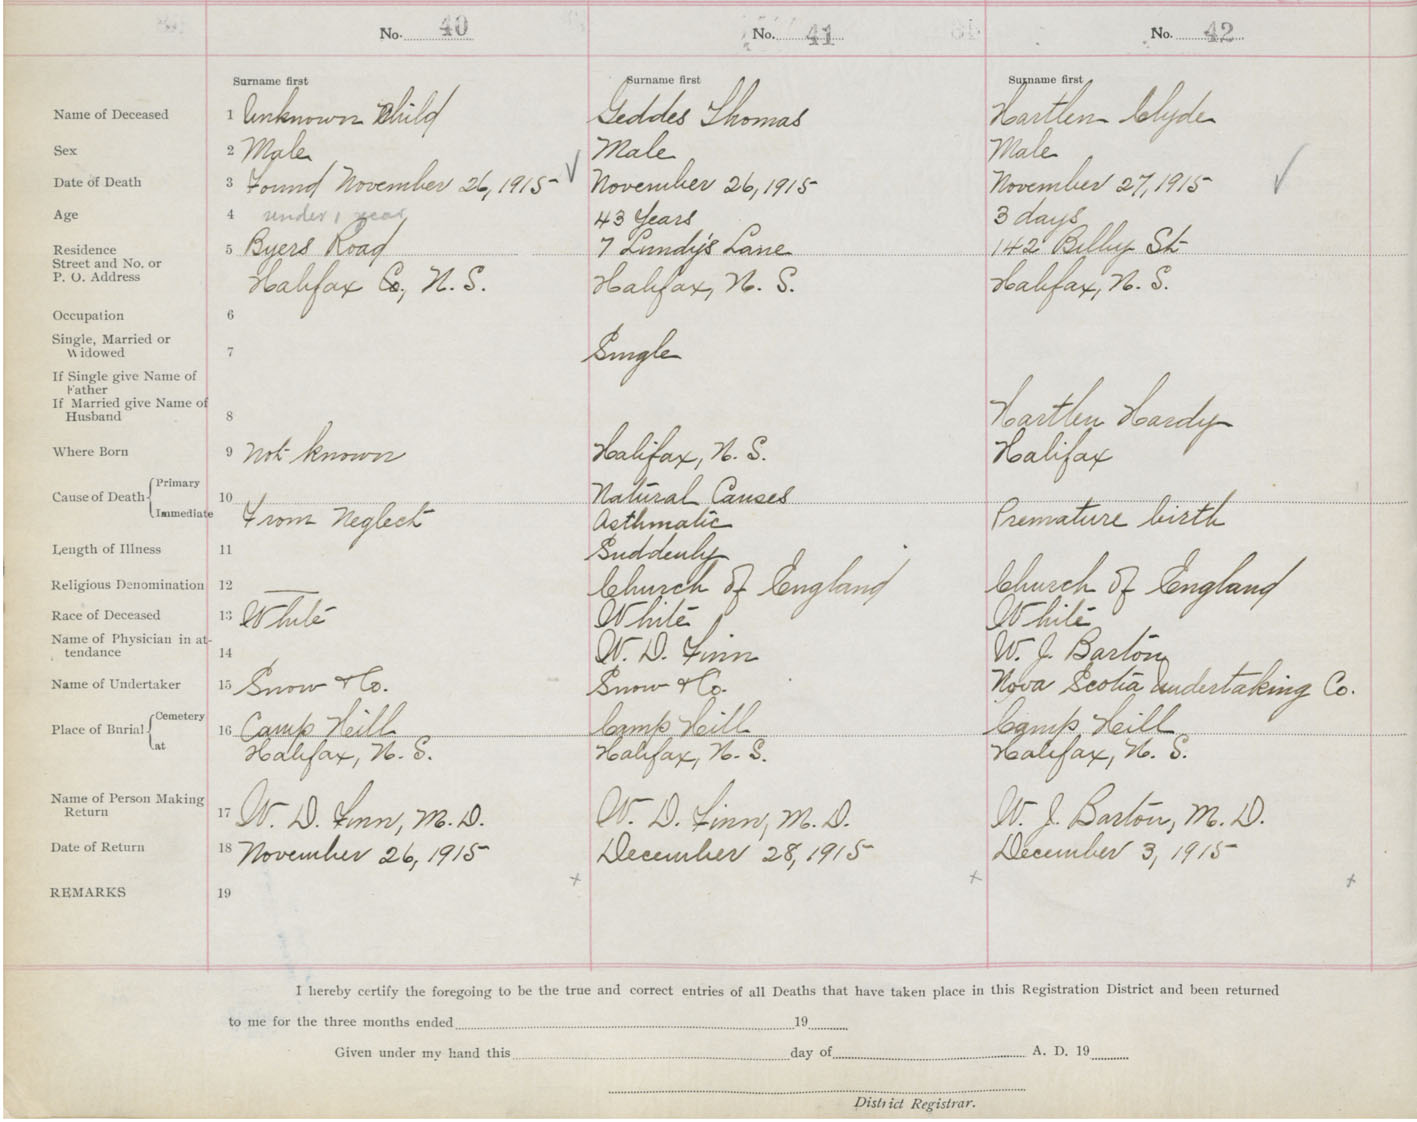 No. 40 No. 41 No. 42
Surname first Surname first Surname first
Name of Deceased 1 Unknown Child Geddes Thomas Hartlen Clyde
Sex 2 Male Male Male
Date of Death 3 Found November 26, 1915 November 26, 1915 November 27, 1915
Age 4 under 1 year 43 Years 3 days
Residence 5 Byers Road 7 Lundy's Lane 142 Bilby St
Street and No. or
P. O. Address Halifax Co, N. S. Halifax, N. S. Halifax, N. S.
Occupation 6
Single, Married or
Widowed 7 Single
If Single give Name of
Father
If Married give Name of
Husband 8 Hartlen Hardy
Where Born 9 Not known Halifax, N. S. Halifax
Cause of Death Primary 10 Natural Causes
Immediate From Neglect Asthmatic Premature birth
Length of Illness 11 Suddenly
Religious Denomination 12 — Church of England Church of England
Race of Deceased 13 White White White
Name of Physician in at-
tendance 14 W. D. Finn W. J. Barton
Name of Undertaker 15 Snow & Co. Snow & Co. Nova Scotia Undertaking Co.
Place of Burial Cemetery 16 Camp Hill Camp Hill Camp Hill
at Halifax, N. S. Halifax, N. S. Halifax, N. S.
Name of Person Making
Return 17 W. D. Finn, M. D. W. D. Finn, M. D. W. J. Barton, M. D.
Date of Return 18 November 26, 1915 December 28, 1915 December 3, 1915
REMARKS 19
I hereby certify the foregoing to be the true and correct entries of all Deaths that have taken place in this Registration District and been returned
to me for the three months ended 19
Given under my hand this day of A. D. 19
District Registrar.